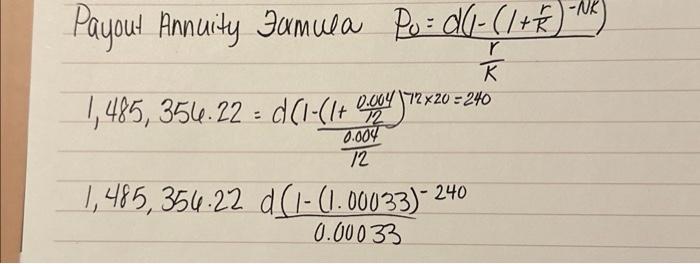 Payout Annuity Formula P₀ = d(1-(1+r/k)^-NK) / r/K
1,485,356.22 = d(1-(1+0.004/12)^-12×20=240 / 0.004/12
1,485,356.22 d(1-(1.00033)^-240 / 0.00033